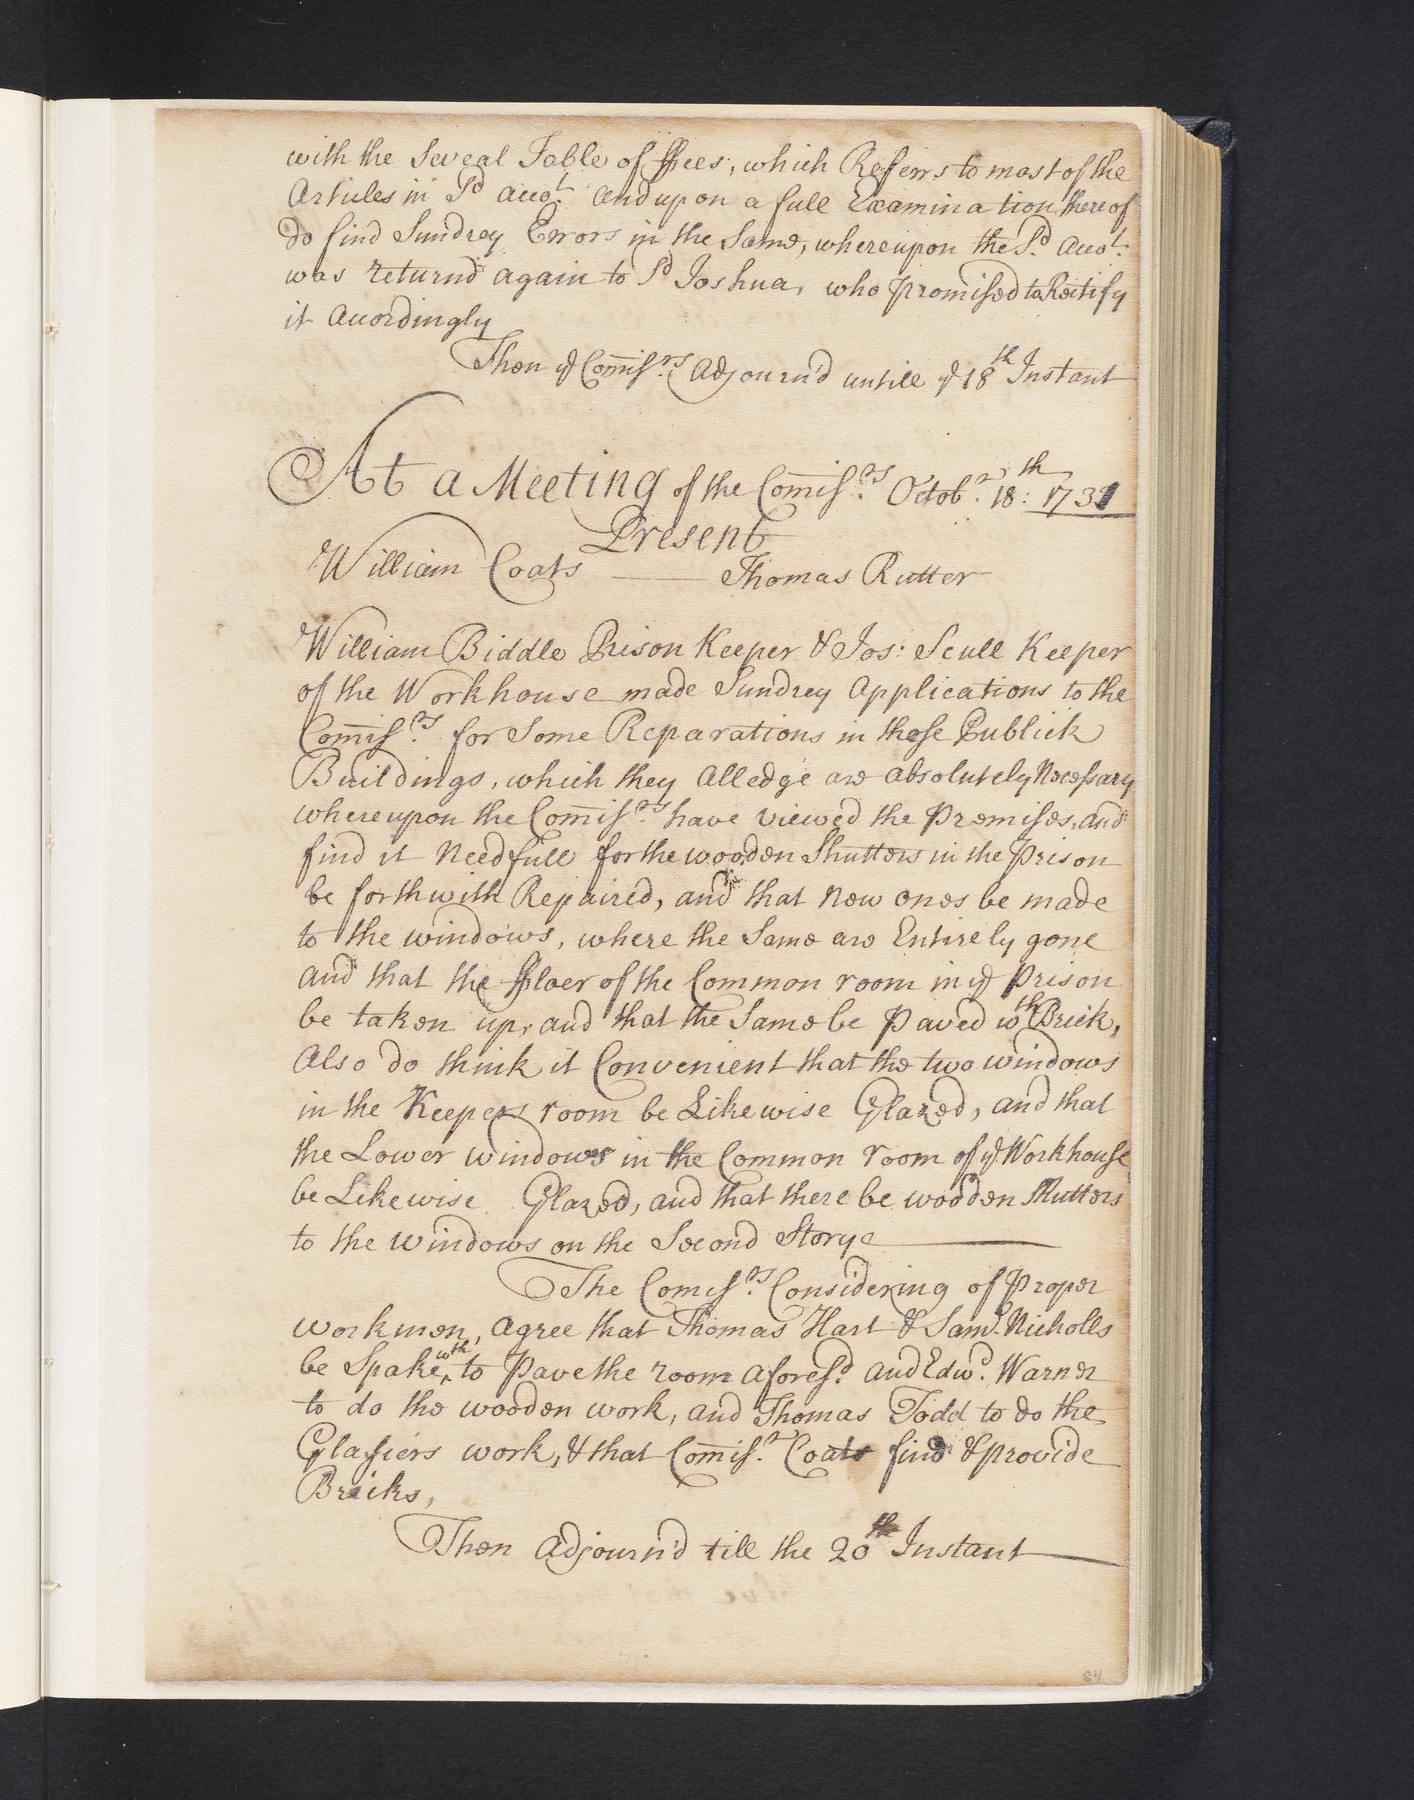 with the Seveal Table of ffees, which Referrs to most of the
Articles in Sd. Accot. And upon a full Examination thereof
do find Sundrey Errors in the Same, whereupon the Sd. Accot.
was returnd again to Sd Joshua, who promised to Rectify
it Accordingly
Then ye Comissrs. Adjourn'd untill ye 18th Instant
At a Meeting of the Comissrs. Octobr. 18th: 1731
Present
William Coats —— Thomas Rutter
William Biddle Prison Keeper & Jos: Scull Keeper
of the Workhouse made Sundrey Applications to the
Comissrs. for Some Reparations in those Publick
Buildings, which they Alledge are absolutely Necessary
whereupon the Comissrs. have viewed the Premises, and
find it Needfull for the wooden Shutters in the Prison
be forthwith Repaired, and that New ones be made
to the windows, where the Same are Entirely gone
And that the ffloer of the Common room in ye Prison
be taken up, and that the Same be Paved wth Brick,
Also do think it Convenient that the two windows
in the Keepers room be Likewise Glazed, and that
the Lower windows in the Common room of ye Workhouse
be Likewise Glazed, and that there be wooden Shutters
to the windows on the Second Storye
The Comissrs. Considering of Proper
workmen, Agree that Thomas Hart & Saml. Nicholls
be Spake wth to Pave the room aforesd. and Edwd. Warner
to do the wooden work, and Thomas Todd to do the
Glasiers work, & that Comissr. Coats find & provide
Bricks,
Then Adjourn'd till the 20th Instant
84